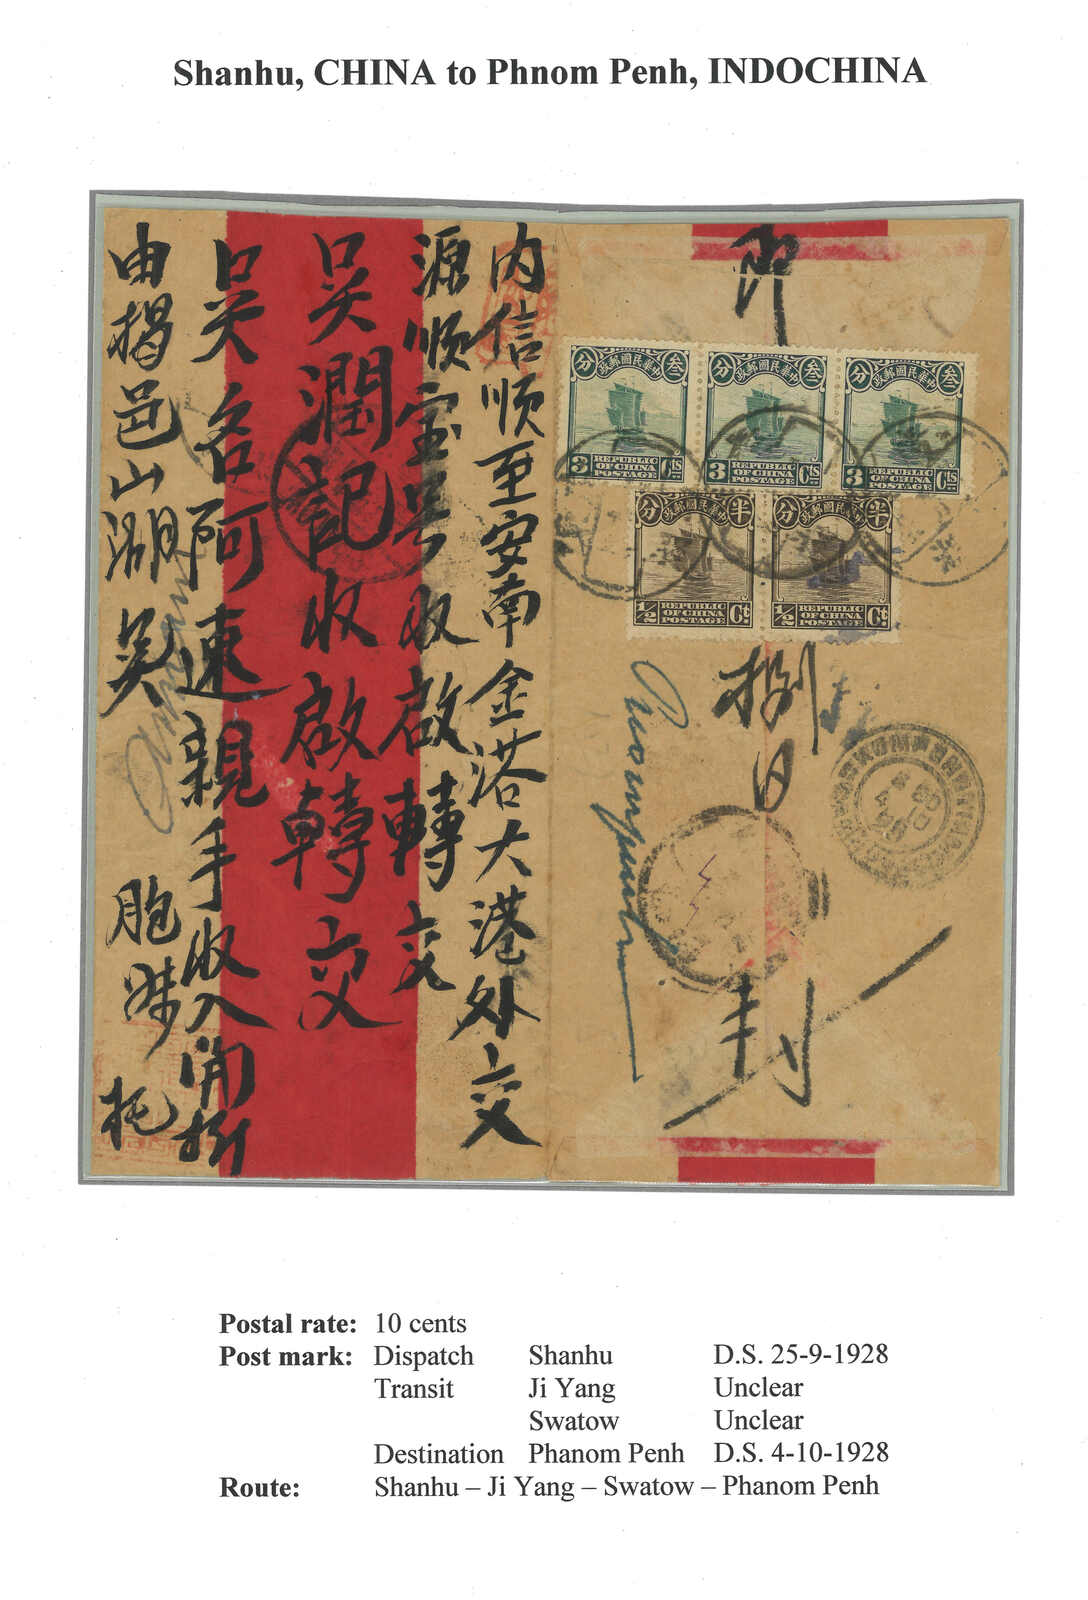 Shanhu, CHINA to Phnom Penh, INDOCHINA
内信順至安南金塔大港外交
源順宝号收啟轉交
吴潤記收啟轉交
吴名阿速親手收入開拆
由揭邑山湖吴 胞 托
即
分 政郵國民華中 叁
3 REPUBLIC OF CHINA POSTAGE Cts
分 政郵國民華中 叁
3 REPUBLIC OF CHINA POSTAGE Cts
分 政郵國民華中 叁
3 REPUBLIC OF CHINA POSTAGE Cts
分 政郵國民華中 半
1/2 REPUBLIC OF CHINA POSTAGE Ct
分 政郵國民華中 半
1/2 REPUBLIC OF CHINA POSTAGE Ct
捌月
封
Postal rate: 10 cents
Post mark: Dispatch Shanhu D.S. 25-9-1928
Transit Ji Yang Unclear
Swatow Unclear
Destination Phanom Penh D.S. 4-10-1928
Route: Shanhu – Ji Yang – Swatow – Phanom Penh